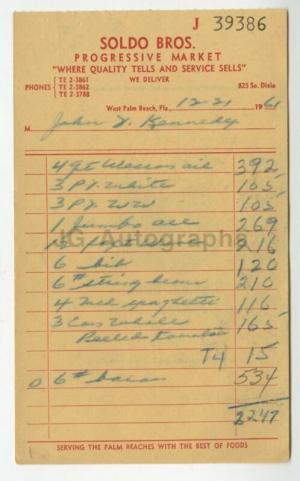 J 39386
SOLDO BROS.
PROGRESSIVE MARKET
"WHERE QUALITY TELLS AND SERVICE SELLS"
WE DELIVER
PHONES TE 2-3861
TE 2-3862
TE 2-3788
825 So. Dixie
West Palm Beach, Fla., 12-21 1961
M John F. Kennedy
4 qt Wesson oil 392
3 Pt. White 105
3 Pt. W W 105
1 Jumbo 269
816
6 bib 120
6# string beans 210
4 med spaghetti 116
3 Can Whole 165
Peeled Tomatoes
T4 15
6# bacon 534
2247
SERVING THE PALM BEACHES WITH THE BEST OF FOODS
JG Autographs